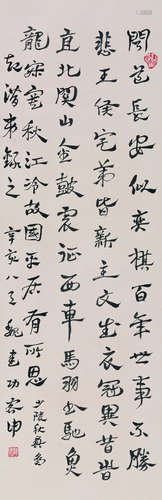 聞道長安似奕棋百年世事不勝
悲王侯宅第皆新主文武衣冠異昔旹
直北關山金鼓震征西車馬羽書馳魚
龍寂寞秋江冷故國平居有所思 少陵秋興為
起潛弟錄之 辛亥八月 魏建功 客申